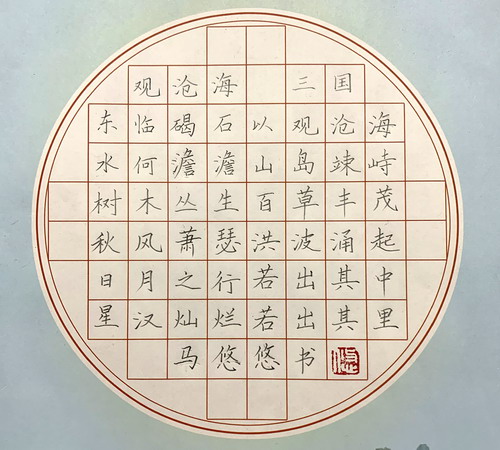 观沧海 三国
东临碣石以观沧海
水何澹澹山岛竦峙
树木丛生百草丰茂
秋风萧瑟洪波涌起
日月之行若出其中
星汉灿烂若出其里
马悠悠书